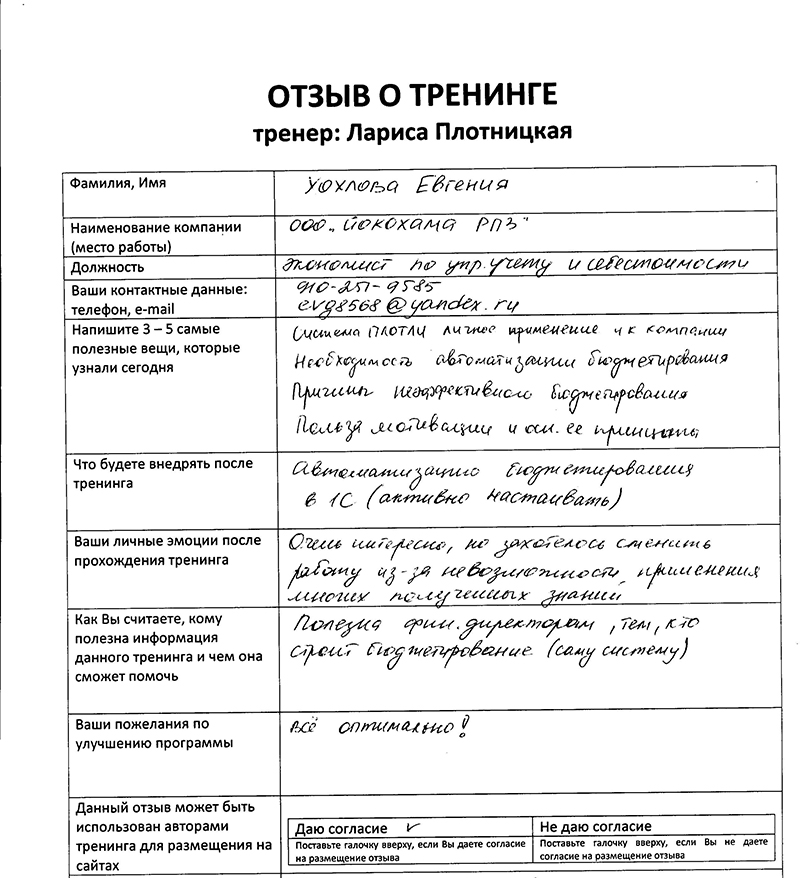 ОТЗЫВ О ТРЕНИНГЕ
тренер: Лариса Плотницкая
Фамилия, Имя
Уохлова Евгения
Наименование компании
(место работы)
ООО „Йокохама РПЗ"
Должность
Экономист по упр. учету и себестоимости
Ваши контактные данные:
телефон, e-mail
910-251-9585
evg8568@yandex.ru
Напишите 3 – 5 самые
полезные вещи, которые
узнали сегодня
Система ПЛОТЛИ личное применение и к компании
Необходимость автоматизации бюджетирования
Причины неэффективного бюджетирования
Польза мотивации и осн. ее принципы
Что будете внедрять после
тренинга
Автоматизацию бюджетирования
в 1С (активно настаивать)
Ваши личные эмоции после
прохождения тренинга
Очень интересно, но захотелось сменить
работу из-за невозможности применения
многих полученных знаний
Как Вы считаете, кому
полезна информация
данного тренинга и чем она
сможет помочь
Полезна фин. директорам, тем, кто
строит бюджетирование (саму систему)
Ваши пожелания по
улучшению программы
всё оптимально!
Данный отзыв может быть
использован авторами
тренинга для размещения на
сайтах
Даю согласие ✓
Поставьте галочку вверху, если Вы даете согласие
на размещение отзыва
Не даю согласие
Поставьте галочку вверху, если Вы не даете
согласие на размещение отзыва